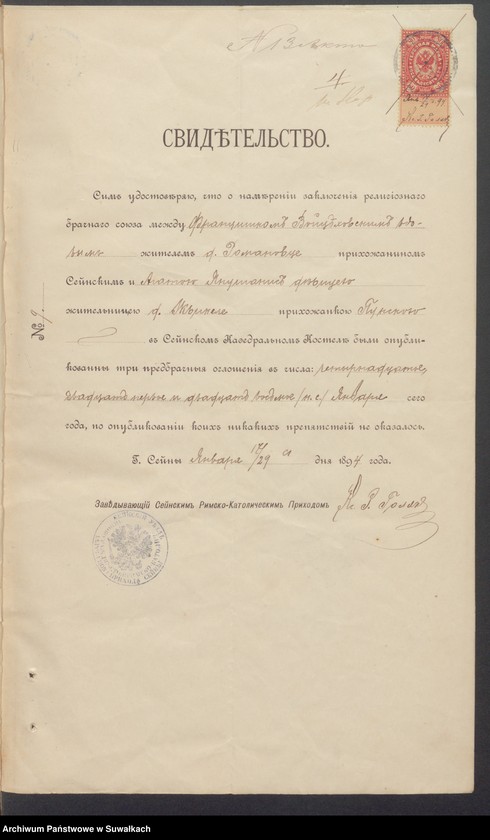 4
СВИДѢТЕЛЬСТВО.
Симъ удостовѣряю, что о намѣреніи заключенія религіознаго
брачнаго союза между Францишкомъ вдо-
вымъ жителемъ д. Романовце прихожаниномъ
Сейнскимъ и Агатою дѣвицею
жительницею д. прихожанкою Пунскою
№ 9.
въ Сейнскомъ Каѳедральномъ Костелѣ были опубли-
кованны три предбрачныя оглашенія въ числа: четырнадцатое,
двадцать первое и двадцать восьмое (н. с.) Января сего
года, по опубликованіи коихъ никакихъ препятствій не оказалось.
Г. Сейны Января 17/29 дня 1894 года.
Завѣдывающій Сейнскимъ Римско-Католическимъ Приходомъ
Archiwum Państwowe w Suwałkach